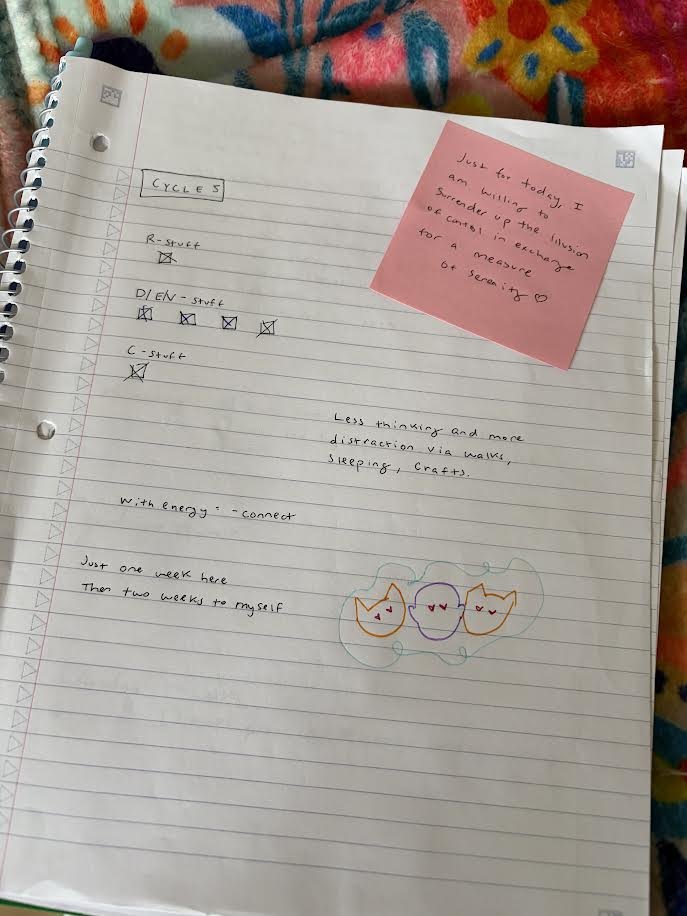 CYCLE 5
R-stuff
D/EN-stuff
C-stuff
Just for today, I
am willing to
surrender up the illusion
of control in exchange
for a measure
of serenity ♡
Less thinking and more
distraction via walks,
sleeping, crafts.
With energy: -connect
Just one week here
Then two weeks to myself